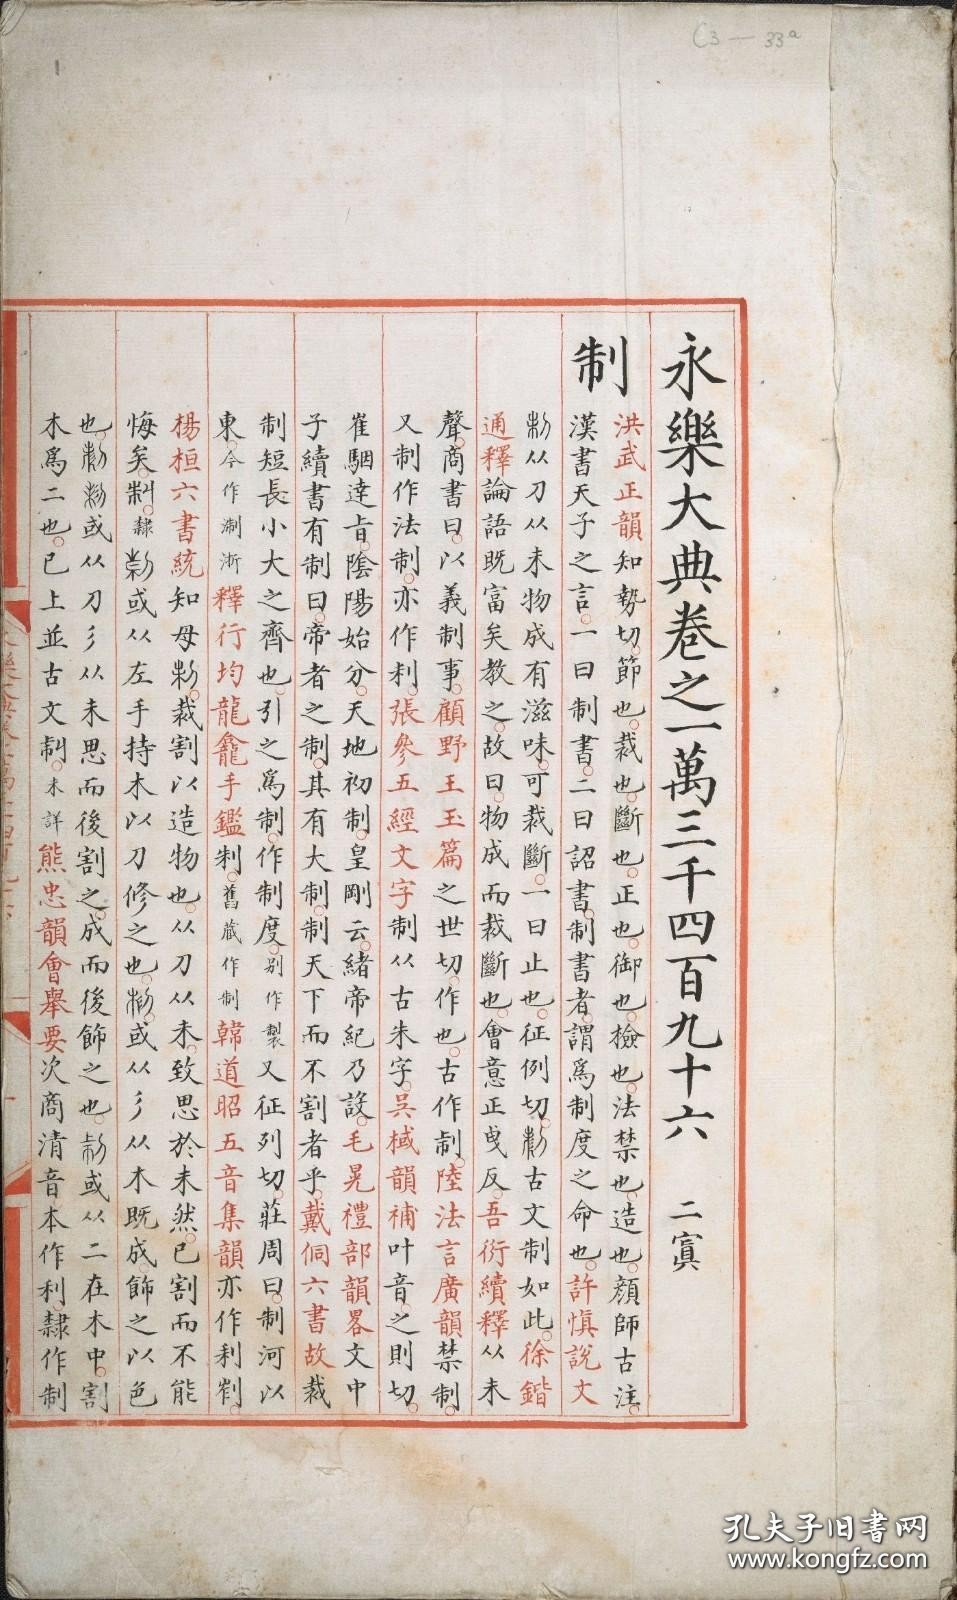 C3—33a
永樂大典卷之一萬三千四百九十六　二寘
制
洪武正韻知勢切。節也。裁也。斷也。正也。御也。檢也。法禁也。造也。顏師古注。
漢書天子之言。一曰制書。二曰詔書。制書者。謂爲制度之命也。許慎說文
从刀从未。物成有滋味。可裁斷。一曰止也。征例切。古文制如此。徐鍇
通釋論語既富矣教之。故曰。物成而裁斷也。會意正曳反。吾衍續釋从未
聲。商書曰。以義制事。顧野王玉篇之世切。作也。古作制。陸法言廣韻禁制。
又制作法制。亦作利。張參五經文字制从古朱字。吳棫韻補叶音之則切。
崔駰達旨。陰陽始分。天地初制。皇剛云緒。帝紀乃設。毛晃禮部韻畧文中
子續書有制。曰。帝者之制。其有大制。制天下而不割者乎。戴侗六書故裁
制短長小大之齊也。引之爲制。作制度。别作製又征列切。莊周曰。制河以
東。今作淛浙釋行均龍龕手鑑制。舊藏作制韓道昭五音集韻亦作利
楊桓六書統知母。裁割以造物也。从刀从未。致思於未然。已割而不能
悔矣。隸或从左手持木以刀修之也。或从彡从木既成。飾之以色
也。或从刀彡从未思而後割之。成而後飾之也。或从二在木中。割
木爲二也。已上並古文制。未詳熊忠韻會舉要次商清音本作利。隸作制
孔夫子旧书网
www.kongfz.com